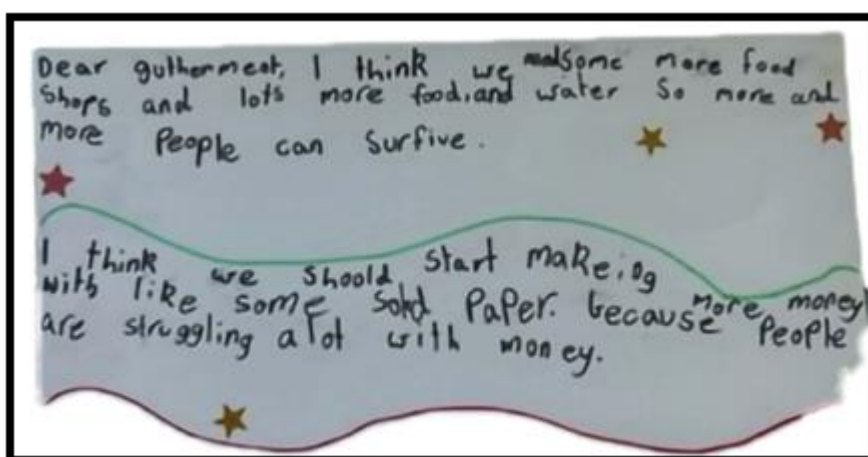 Dear gutherment, I think we need some more food
shops and lots more food, and water so more and
more People can Surfive.
I think we shoold start make.ing
with like some solid PaPer. because more money
are struggling alot with money. People